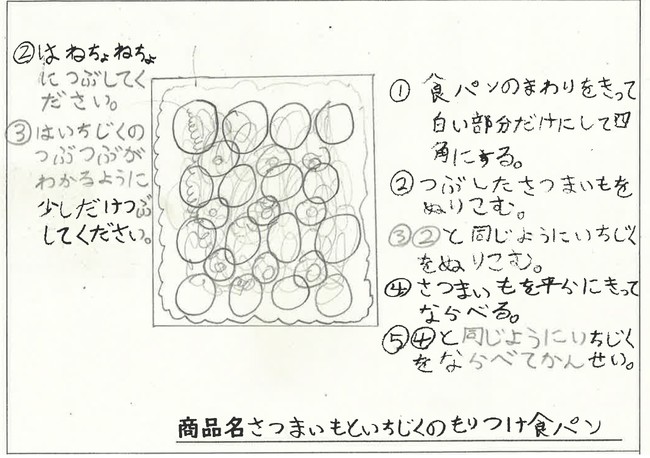 ②はねちょねちょ
につぶしてく
ださい。
③はいちじくの
つぶつぶが
わかるように
少しだけつぶ
してください。
① 食パンのまわりをきって
白い部分だけにして四
角にする。
②つぶしたさつまいもを
ぬりこむ。
③②と同じようにいちじく
をぬりこむ。
④さつまいもを平分にきって
ならべる。
⑤④と同じようにいちじく
をならべてかんせい。
商品名さつまいもといちじくのもりつけ食パン